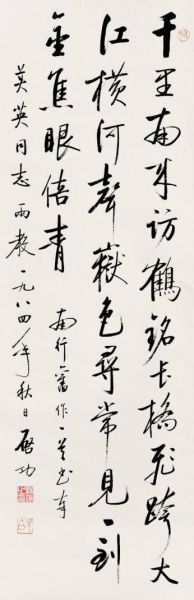 千里南来访鹤铭长桥飞跨大
江横河声嶽色寻常见一到
金焦眼倍青
南行舊作一首书奉
英英同志雨教一九八四年秋日启功